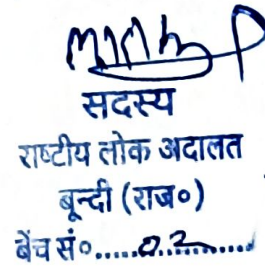 सदस्य
राष्टीय लोक अदालत
बून्दी (राज०)
बेंच सं०.....02.....